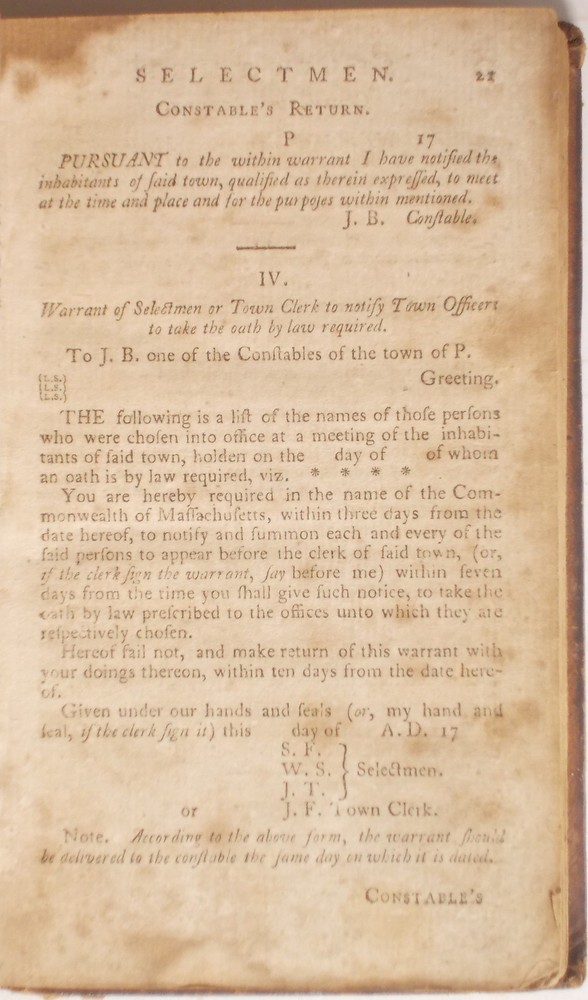 SELECTMEN. 21
CONSTABLE'S RETURN.
P 17
PURSUANT to the within warrant I have notified the
inhabitants of ſaid town, qualified as therein expreſſed, to meet
at the time and place and for the purpoſes within mentioned.
J. B. Conſtable.
IV.
Warrant of Selectmen or Town Clerk to notify Town Officers
to take the oath by law required.
To J. B. one of the Conſtables of the town of P.
(L.S.)
(L.S.) Greeting.
(L.S.)
THE following is a liſt of the names of thoſe perſons
who were choſen into office at a meeting of the inhabi-
tants of ſaid town, holden on the day of of whom
an oath is by law required, viz. * * * *
You are hereby required in the name of the Com-
monwealth of Maſſachuſetts, within three days from the
date hereof, to notify and ſummon each and every of the
ſaid perſons to appear before the clerk of ſaid town, (or,
if the clerk ſign the warrant, ſay before me) within ſeven
days from the time you ſhall give ſuch notice, to take the
oath by law preſcribed to the offices unto which they are
reſpectively choſen.
Hereof fail not, and make return of this warrant with
your doings thereon, within ten days from the date here-
of.
Given under our hands and ſeals (or, my hand and
ſeal, if the clerk ſign it) this day of A. D. 17
S. F.
W. S. } Selectmen.
J. T.
or J. F. Town Clerk.
Note. According to the above form, the warrant ſhould
be delivered to the conſtable the ſame day on which it is dated.
CONSTABLE'S